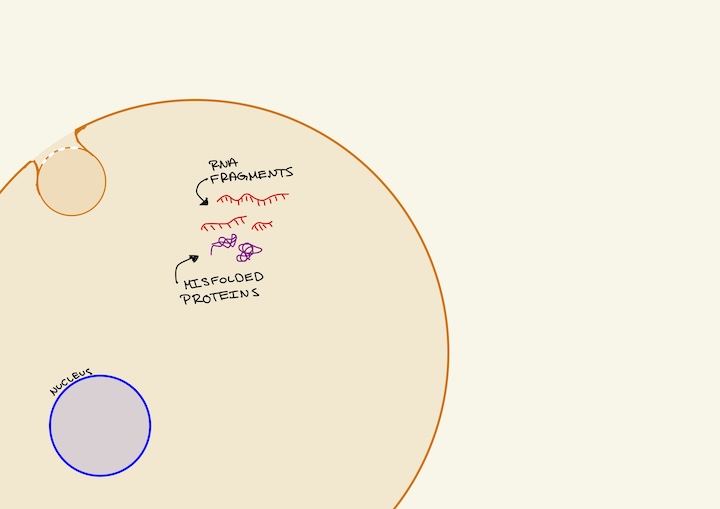 RNA
FRAGMENTS
MISFOLDED
PROTEINS
NUCLEUS